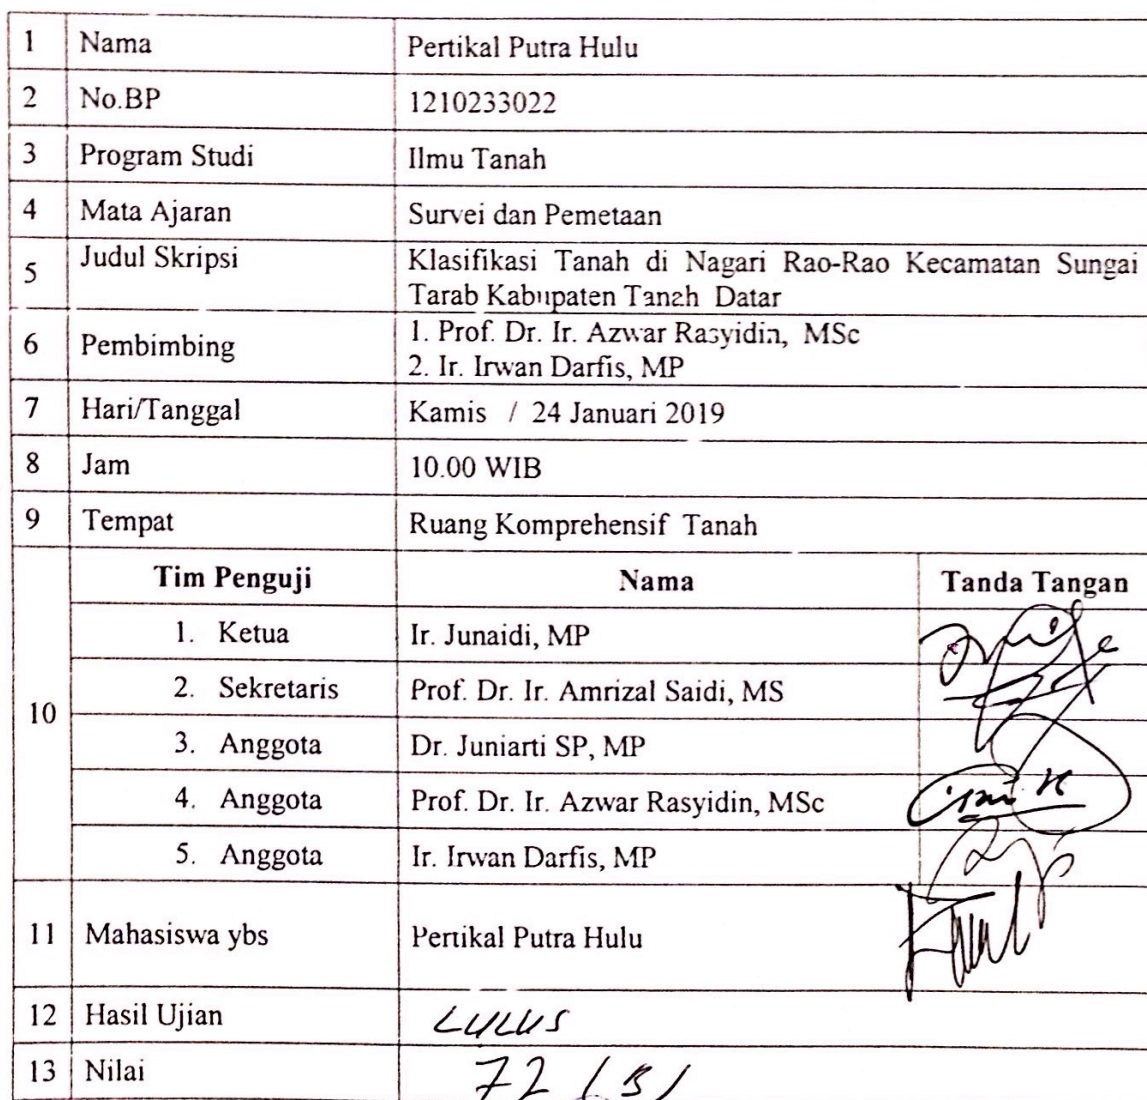 1 Nama Pertikal Putra Hulu
2 No.BP 1210233022
3 Program Studi Ilmu Tanah
4 Mata Ajaran Survei dan Pemetaan
5 Judul Skripsi Klasifikasi Tanah di Nagari Rao-Rao Kecamatan Sungai
Tarab Kabupaten Tanah Datar
6 Pembimbing 1. Prof. Dr. Ir. Azwar Rasyidin, MSc
2. Ir. Irwan Darfis, MP
7 Hari/Tanggal Kamis / 24 Januari 2019
8 Jam 10.00 WIB
9 Tempat Ruang Komprehensif Tanah
10 Tim Penguji Nama Tanda Tangan
1. Ketua Ir. Junaidi, MP
2. Sekretaris Prof. Dr. Ir. Amrizal Saidi, MS
3. Anggota Dr. Juniarti SP, MP
4. Anggota Prof. Dr. Ir. Azwar Rasyidin, MSc
5. Anggota Ir. Irwan Darfis, MP
11 Mahasiswa ybs Pertikal Putra Hulu
12 Hasil Ujian LULUS
13 Nilai 72 (B)